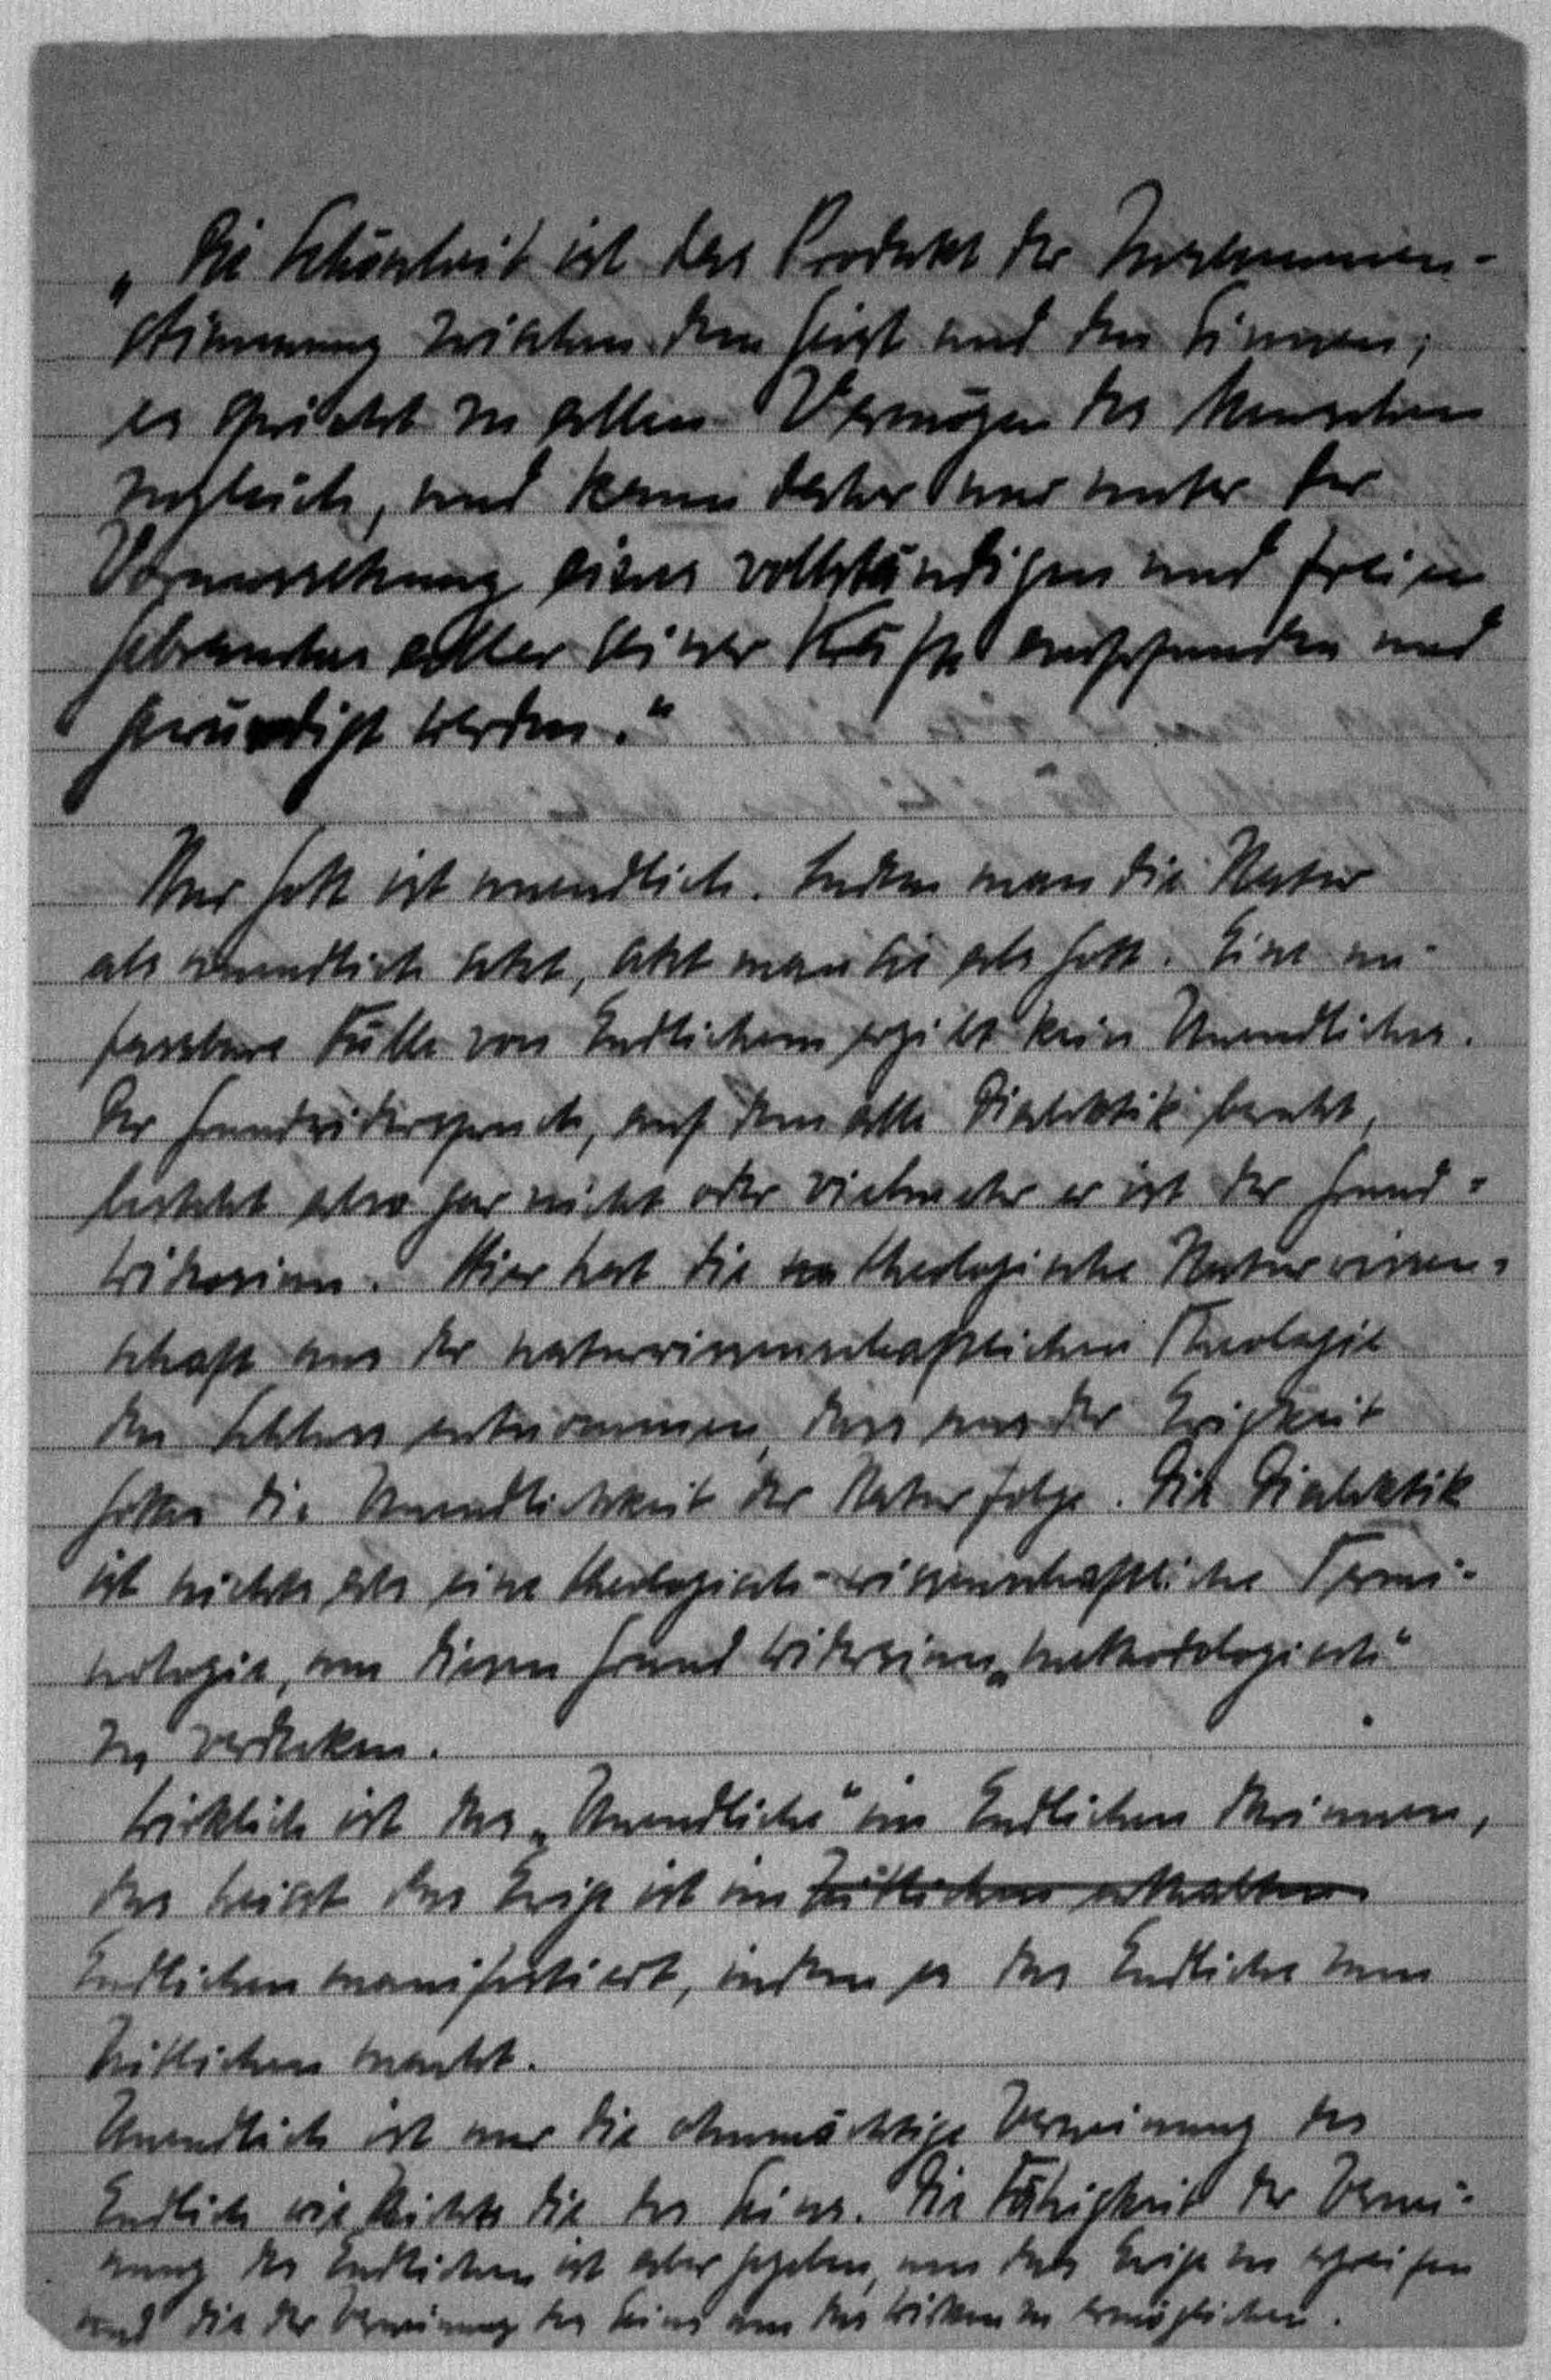 „Die Schönheit ist das Produkt der Zusammen-
stimmung zwischen dem Geist und den Sinnen;
es spricht zu allen Vermögen des Menschen
zugleich, und kann daher nur unter der
Voraussetzung eines vollständigen und freien
Gebrauches aller seiner Kräfte empfunden und
gewürdigt werden.“
Nur Gott ist unendlich. Indem man die Natur
als unendlich setzt, setzt man sie als Gott. Eine un-
fassbare Fülle von Endlichem ergibt kein Unendliches.
Der Grundwiderspruch, auf dem alle Dialektik beruht,
besteht also gar nicht oder vielmehr er ist der Grund-
widersinn. Hier hat die theologische Naturwissen-
schaft aus der naturwissenschaftlichen Theologie
den Schluss entnommen, dass aus der Ewigkeit
Gottes die Unendlichkeit der Natur folge. Die Dialektik
ist nichts als eine theologisch-wissenschaftliche Termi-
nologie, um diesen Grundwidersinn „methodologisch“
zu verdecken.
Wirklich ist das „Unendliche“ im Endlichen drinnen,
das heisst das Ewige ist im Zeitlichen enthalten
Endlichen manifestiert, indem es das Endliche zum
Zeitlichen macht.
Unendlich ist nur die ohnmächtige Verneinung des
Endlich wie Nichts die des Seins. Die Fähigkeit der Vernei-
nung des Endlichen ist aber gegeben, um das Ewige zu ergreifen
und die der Verneinung des Seins um das Wirken zu ermöglichen.